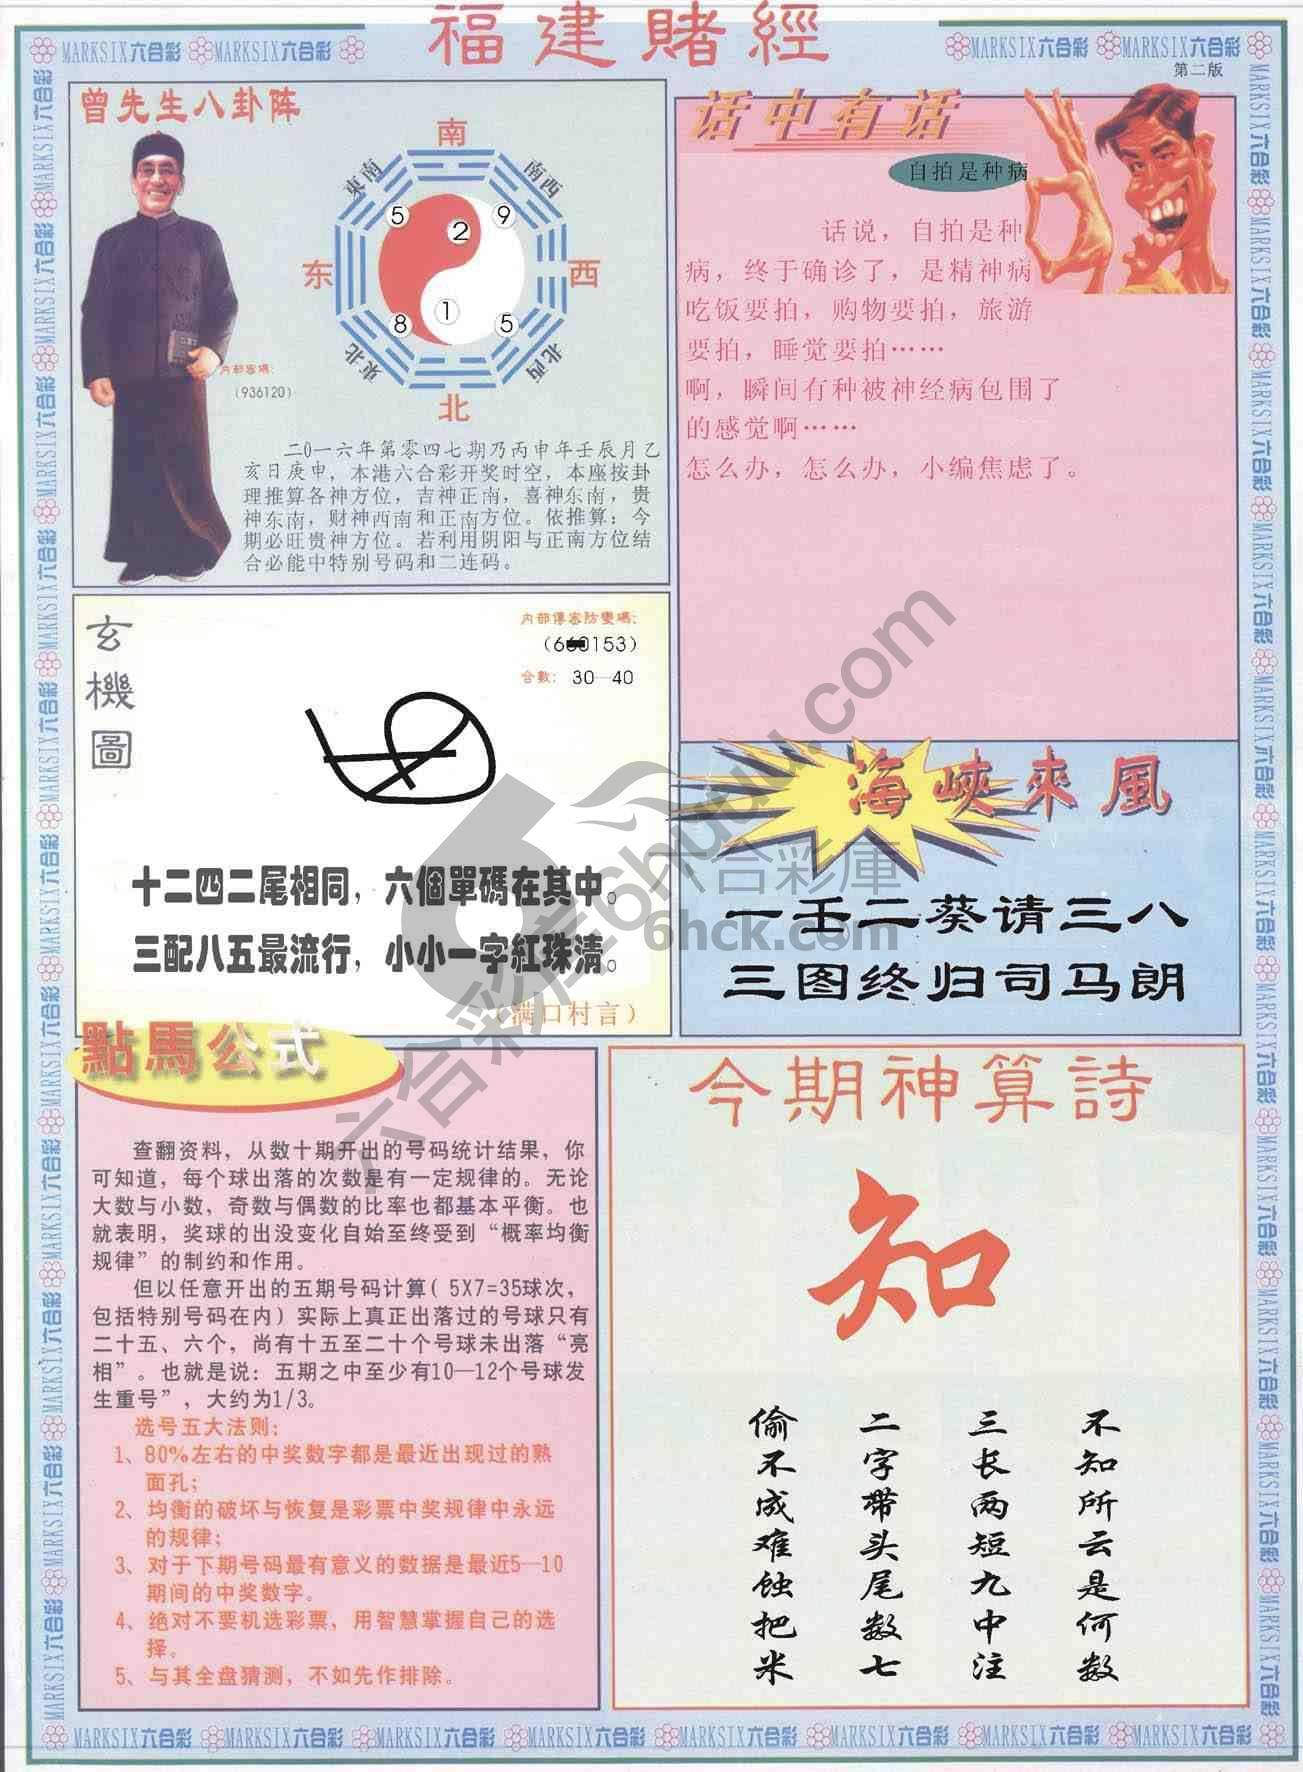 福建賭經
MARKSIX六合彩 MARKSIX六合彩
MARKSIX六合彩 MARKSIX六合彩
第二版
曾先生八卦阵
南
東南
南西
5
2
9
东
西
8
1
5
東北
北西
北
内部密碼:
(936120)
二0一六年第零四七期乃丙申年壬辰月乙
亥日庚申，本港六合彩开奖时空，本座按卦
理推算各神方位，吉神正南，喜神东南，贵
神东南，财神西南和正南方位。依推算：今
期必旺贵神方位。若利用阴阳与正南方位结
合必能中特别号码和二连码。
话中有话
自拍是种病
话说，自拍是种
病，终于确诊了，是精神病
吃饭要拍，购物要拍，旅游
要拍，睡觉要拍……
啊，瞬间有种被神经病包围了
的感觉啊……
怎么办，怎么办，小编焦虑了。
玄機圖
内部傳密防變碼:
0153)
合數: 30—40
十二四二尾相同，六個單碼在其中。
三配八五最流行，小小一字紅珠清。
（满口村言）
海峽來風
一壬二葵请三八
三图终归司马朗
點馬公式
查翻资料，从数十期开出的号码统计结果，你
可知道，每个球出落的次数是有一定规律的。无论
大数与小数，奇数与偶数的比率也都基本平衡。也
就表明，奖球的出没变化自始至终受到“概率均衡
规律”的制约和作用。
但以任意开出的五期号码计算( 5X7=35球次，
包括特别号码在内）实际上真正出落过的号球只有
二十五、六个，尚有十五至二十个号球未出落“亮
相”。也就是说：五期之中至少有10—12个号球发
生重号”，大约为1/3。
选号五大法则:
1、80%左右的中奖数字都是最近出现过的熟
面孔；
2、均衡的破坏与恢复是彩票中奖规律中永远
的规律；
3、对于下期号码最有意义的数据是最近5—10
期间的中奖数字。
4、绝对不要机选彩票，用智慧掌握自己的选
择。
5、与其全盘猜测，不如先作排除。
今期神算詩
知
不知所云是何数
三长两短九中注
二字带头尾数七
偷不成难蚀把米
六合彩库6hcku.com
六合彩庫
6hck.com
MARKSIX六合彩 MARKSIX六合彩 MARKSIX六合彩 MARKSIX六合彩 MARKSIX六合彩 MARKSIX六合彩 MARKSIX六合彩 MARKSIX六合彩